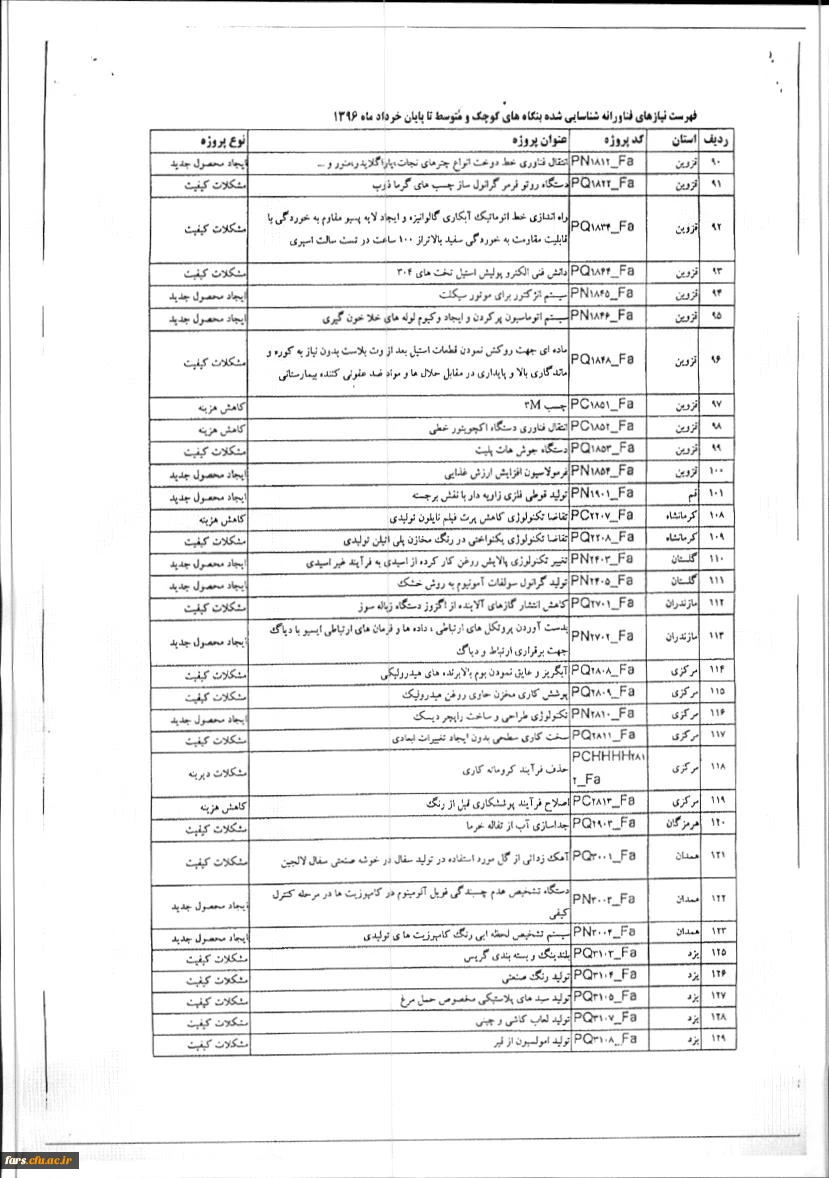 فهرست نیازهای فناورانه شناسایی شده بنگاه های کوچک و متوسط تا پایان خرداد ماه ۱۳۹۶
ردیف استان کد پروژه عنوان پروژه نوع پروژه
۹۰ قزوین PN۱۸۱۲_Fa انتقال فناوری خط دوخت انواع چترهای نجات،پاراگلایدر،منور و ... ایجاد محصول جدید
۹۱ قزوین PQ۱۸۲۲_Fa دستگاه روتو فرمر گرانول ساز چسب های گرما ذوب مشکلات کیفیت
۹۲ قزوین PQ۱۸۳۴_Fa راه اندازی خط اتوماتیک آبکاری گالوانیزه و ایجاد لایه پسیو مقاوم به خوردگی با
قابلیت مقاومت به خوردگی سفید بالاتراز ۱۰۰ ساعت در تست سالت اسپری مشکلات کیفیت
۹۳ قزوین PQ۱۸۴۴_Fa دانش فنی الکترو پولیش استیل تخت های ۳۰۴ مشکلات کیفیت
۹۴ قزوین PN۱۸۴۵_Fa سیستم انژکتور برای موتور سیکلت ایجاد محصول جدید
۹۵ قزوین PN۱۸۴۶_Fa سیستم اتوماسیون پرکردن و ایجاد وکیوم لوله های خلا خون گیری ایجاد محصول جدید
۹۶ قزوین PQ۱۸۴۸_Fa ماده ای جهت روکش نمودن قطعات استیل بعد از وت بلاست بدون نیاز به کوره و
ماندگاری بالا و پایداری در مقابل حلال ها و مواد ضد عفونی کننده بیمارستانی مشکلات کیفیت
۹۷ قزوین PC۱۸۵۱_Fa چسب ۳M کاهش هزینه
۹۸ قزوین PC۱۸۵۲_Fa انتقال فناوری دستگاه اکچویتور خطی کاهش هزینه
۹۹ قزوین PQ۱۸۵۳_Fa دستگاه جوش هات پلیت مشکلات کیفیت
۱۰۰ قزوین PN۱۸۵۴_Fa فرمولاسیون افزایش ارزش غذایی ایجاد محصول جدید
۱۰۱ قم PN۱۹۰۱_Fa تولید قوطی فلزی زاویه دار با نقش برجسته ایجاد محصول جدید
۱۰۸ کرمانشاه PC۲۲۰۷_Fa تقاضا تکنولوژی کاهش پرت فیلم نایلون تولیدی کاهش هزینه
۱۰۹ کرمانشاه PQ۲۲۰۸_Fa تقاضا تکنولوژی یکنواختی در رنگ مخازن پلی اتیلن تولیدی مشکلات کیفیت
۱۱۰ گلستان PN۲۴۰۳_Fa تغییر تکنولوژی پالایش روغن کار کرده از اسیدی به فرآیند غیر اسیدی ایجاد محصول جدید
۱۱۱ گلستان PN۲۴۰۵_Fa تولید گرانول سولفات آمونیوم به روش خشک ایجاد محصول جدید
۱۱۲ مازندران PQ۲۷۰۱_Fa کاهش انتشار گازهای آلاینده از اگزوز دستگاه زباله سوز مشکلات کیفیت
۱۱۳ مازندران PN۲۷۰۲_Fa بدست آوردن پروتکل های ارتباطی ، داده ها و فرمان های ارتباطی ایسیو با دیاگ
جهت برقراری ارتباط و دیاگ ایجاد محصول جدید
۱۱۴ مرکزی PQ۲۸۰۸_Fa آبگریز و عایق نمودن بوم بالابرنده های هیدرولیکی مشکلات کیفیت
۱۱۵ مرکزی PQ۲۸۰۹_Fa پوشش کاری مخزن حاوی روغن هیدرولیک مشکلات کیفیت
۱۱۶ مرکزی PN۲۸۱۰_Fa تکنولوژی طراحی و ساخت راپچر دیسک ایجاد محصول جدید
۱۱۷ مرکزی PQ۲۸۱۱_Fa سخت کاری سطحی بدون ایجاد تغییرات ابعادی مشکلات کیفیت
۱۱۸ مرکزی PCHHHH۲۸۱
۲_Fa حذف فرآیند کروماته کاری مشکلات دیرینه
۱۱۹ مرکزی PC۲۸۱۳_Fa اصلاح فرآیند پوششکاری قبل از رنگ کاهش هزینه
۱۲۰ هرمزگان PQ۲۹۰۳_Fa جداسازی آب از تفاله خرما مشکلات کیفیت
۱۲۱ همدان PQ۳۰۰۱_Fa آهک زدائی از گل مورد استفاده در تولید سفال در خوشه صنعتی سفال لالجین مشکلات کیفیت
۱۲۲ همدان PN۳۰۰۳_Fa دستگاه تشخیص عدم چسبندگی فویل آلومینیوم در کامپوزیت ها در مرحله کنترل
کیفی ایجاد محصول جدید
۱۲۳ همدان PN۳۰۰۴_Fa سیستم تشخیص لحظه ایی رنگ کامپوزیت های تولیدی ایجاد محصول جدید
۱۲۵ یزد PQ۳۱۰۳_Fa بلندینگ و بسته بندی گریس مشکلات کیفیت
۱۲۶ یزد PQ۳۱۰۴_Fa تولید رنگ صنعتی مشکلات کیفیت
۱۲۷ یزد PQ۳۱۰۵_Fa تولید سبد های پلاستیکی مخصوص حمل مرغ مشکلات کیفیت
۱۲۸ یزد PQ۳۱۰۷_Fa تولید لعاب کاشی و چینی مشکلات کیفیت
۱۲۹ یزد PQ۳۱۰۸_Fa تولید امولسیون از قیر مشکلات کیفیت
fars.cfu.ac.ir